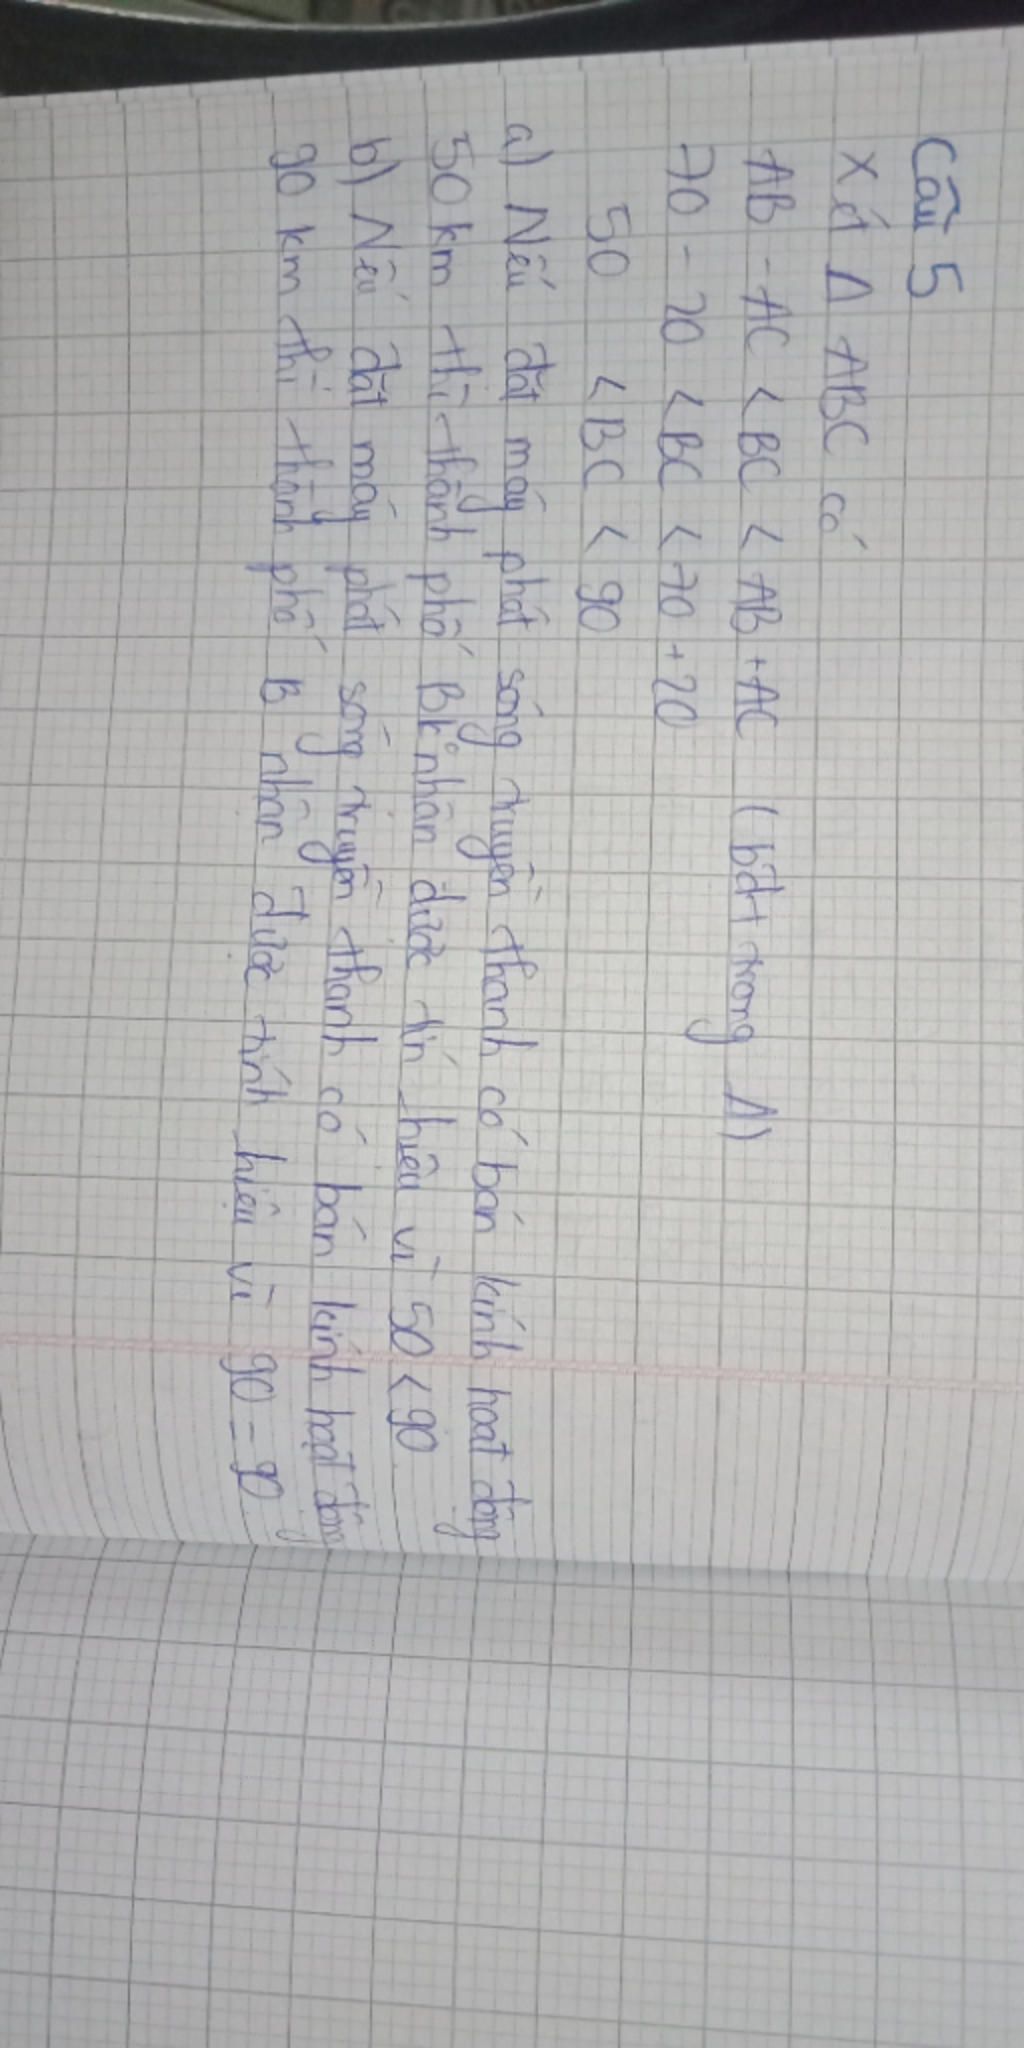 Câu 5
Xét Δ ABC có
AB - AC < BC < AB + AC (bđt trong Δ)
70 - 20 < BC < 70 + 20
50 < BC < 90
a) Nếu đặt máy phát sóng truyền thanh có bán kính hoạt động
50 km thì thành phố B k nhận được tín hiệu vì 50 < 90
b) Nếu đặt máy phát sóng truyền thanh có bán kính hoạt động
90 km thì thành phố B nhận được tính hiệu vì 90 = 90